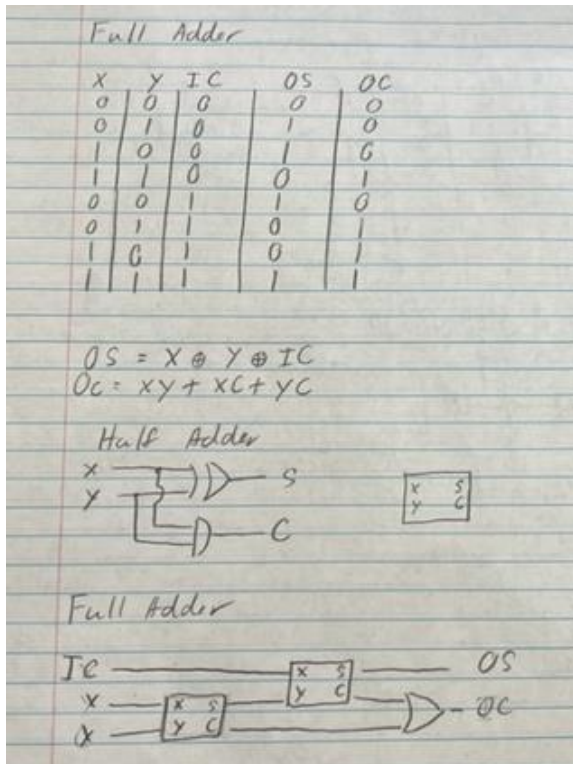 Full Adder
X Y IC OS OC
0 0 0 0 0
0 1 0 1 0
1 0 0 1 0
1 1 0 0 1
0 0 1 1 0
0 1 1 0 1
1 0 1 0 1
1 1 1 1 1
OS = X ⊕ Y ⊕ IC
OC = XY + XC + YC
Half Adder
X S
Y
C
X S
Y C
Full Adder
IC X S OS
Y C
X X S OC
Y C